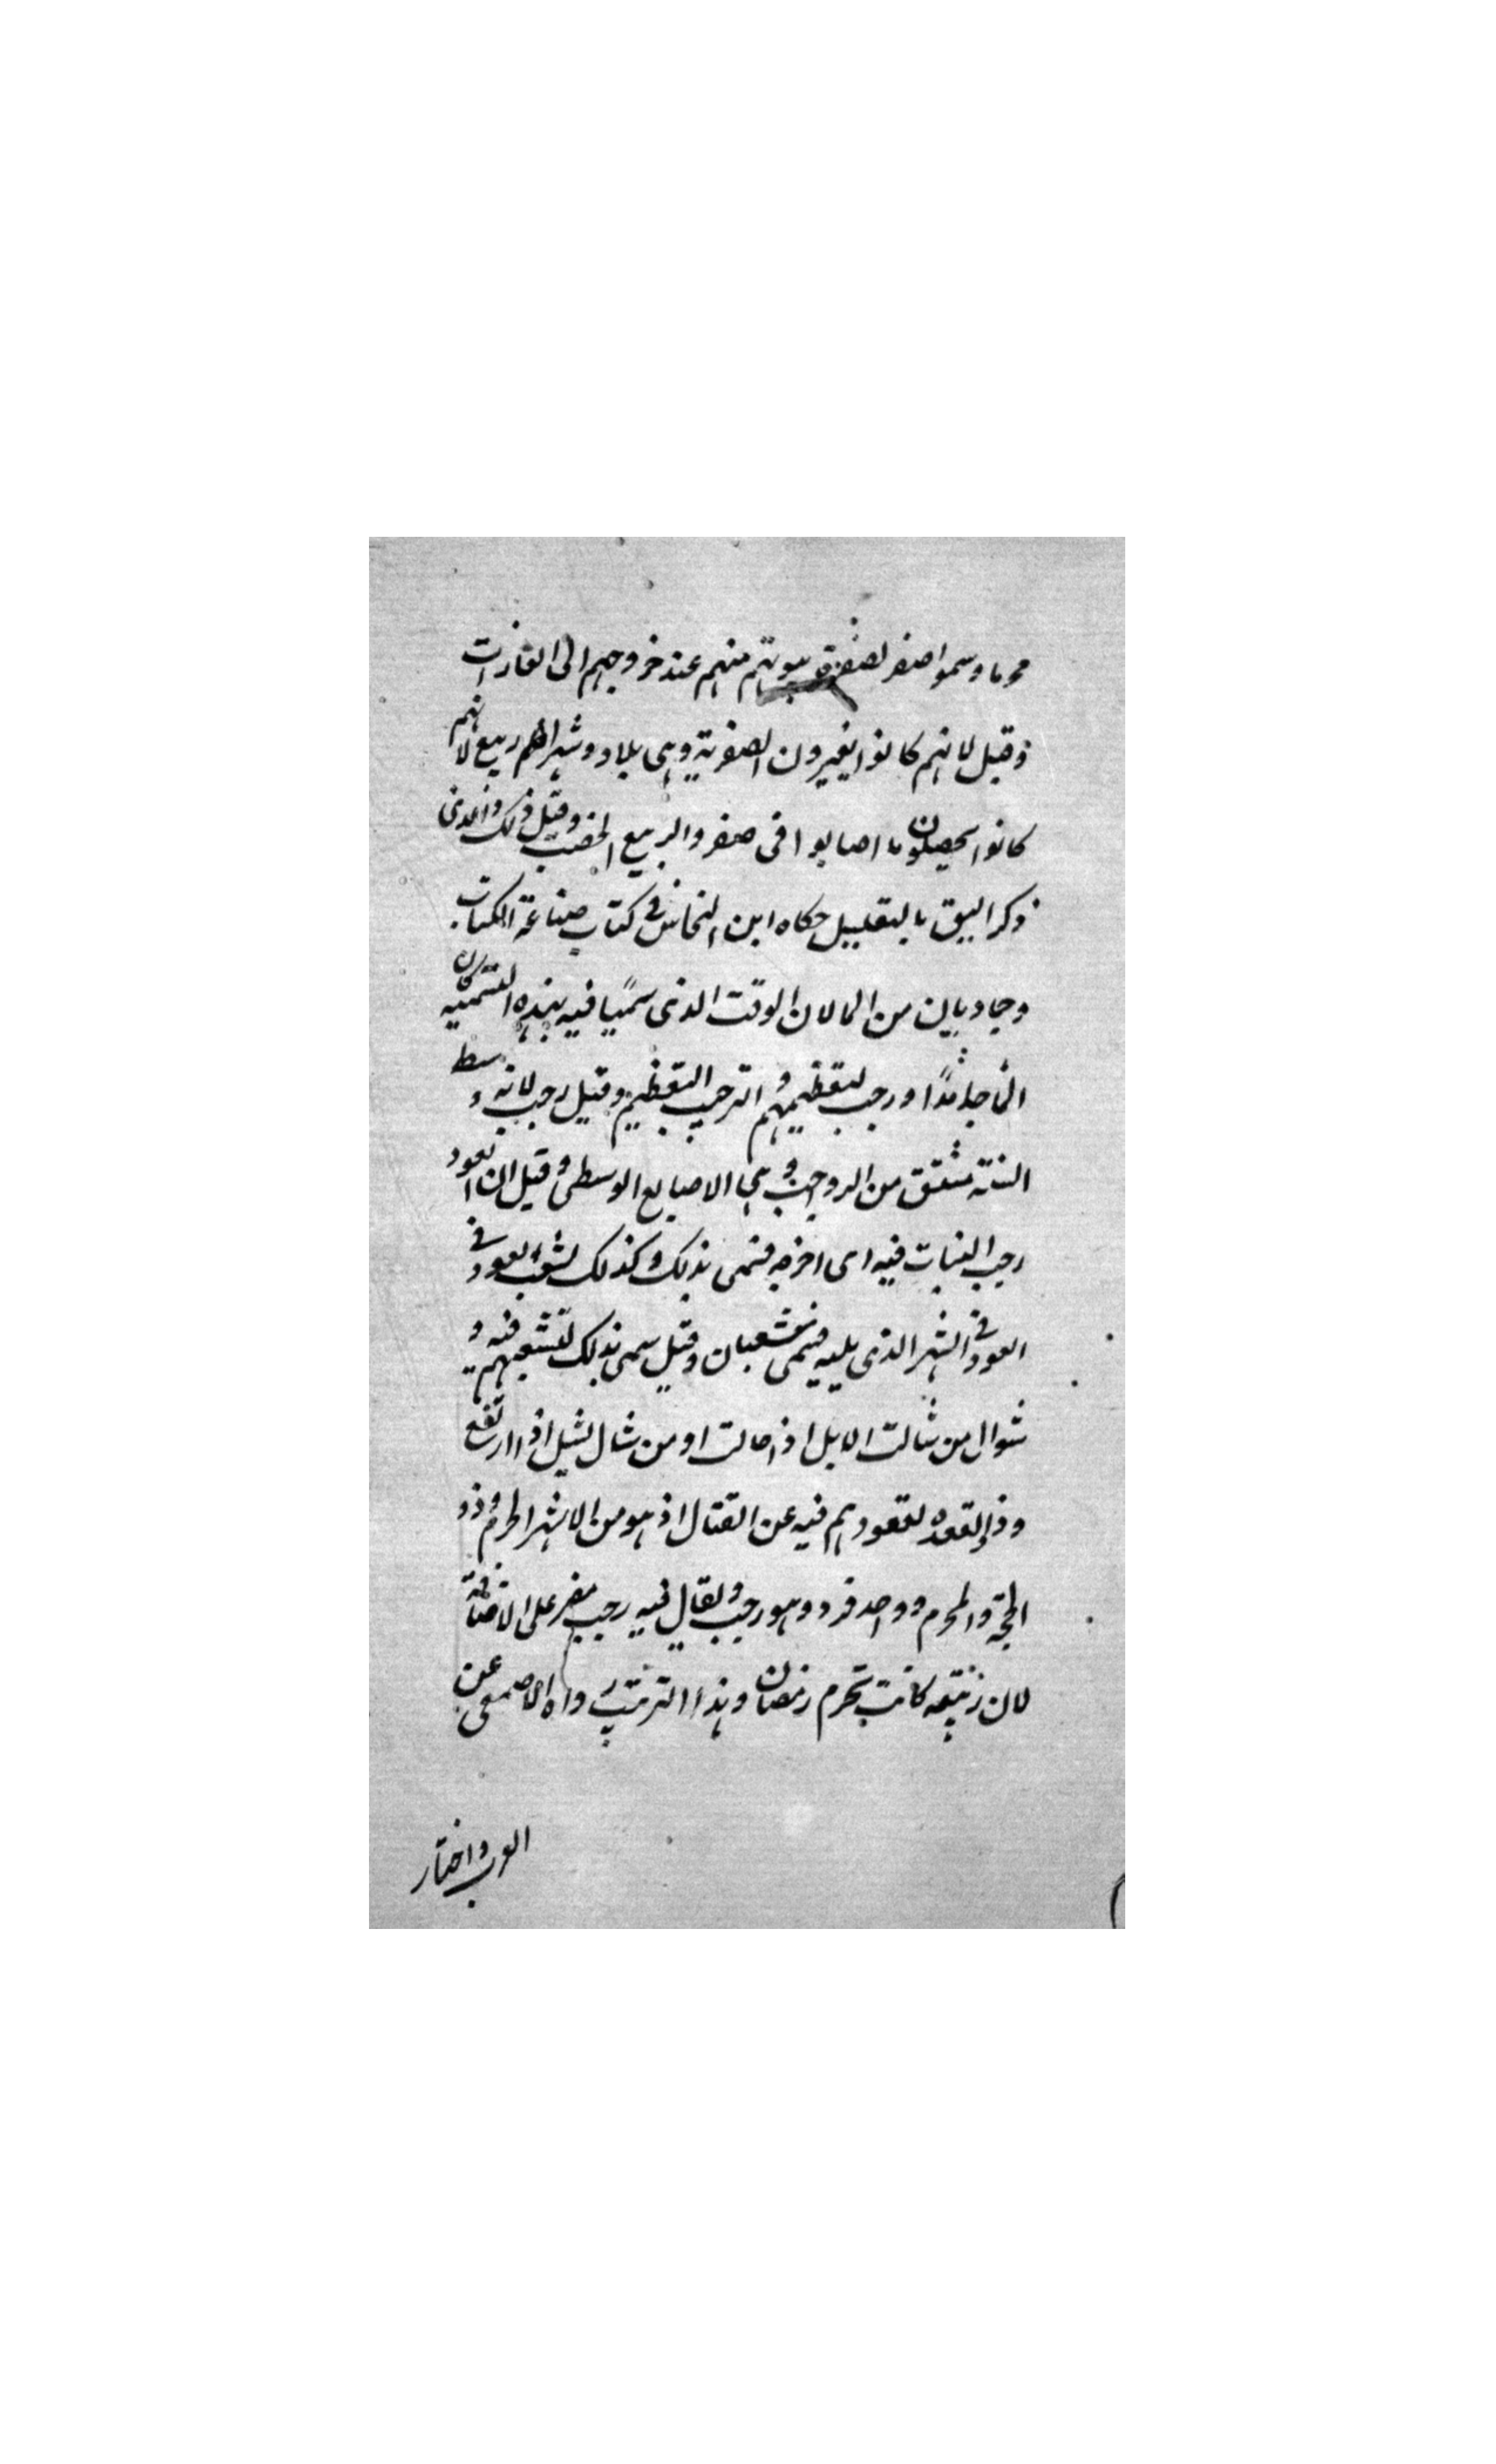 محرما وسموا صفر لصفرة بيوتهم منهم عند خروجهم الى الغارات
وقيل لانهم كانوا يغيرون الصفرية وهى بلاد وشهرا هم ربيع لانهم
كانوا يحصلون ما اصابوا فى صفر والربيع الخصب وقيل ذلك والذى
ذكر اليق بالتقليل حكاه ابن النحاس فى كتاب صناعة الكتاب
وجماديان من الما لان الوقت الذى سميا فيه بهذه التسمية كان
الما جامدًا ورجب لتعظيمهم و الترحيب التعظيم وقيل رجب لانه وسط
السنة مشتق من الرواجب وهى الاصابع الوسطى وقيل ان العود
رجب النبات فيه اى اخرجه فسمى بذلك وكذلك تشعب العود فى
العود فى الشهر الذى يليه فسمى شعبان وقيل سمى بذلك لتشعبهم فيه و
شوال من شالت الابل اذا حالت او من شال يشيل اذا ارتفع
وذو القعده لقعودهم فيه عن القتال اذ هو من الاشهر الحرم وذو
الحجة والمحرم وواحد فرد وهو رجب ويقال فيه رجب مضر على الاضافة
لان ربيعه كانت تحرم رمضان وهذا الترتيب رواه الاصمعى عن
العرب واختار